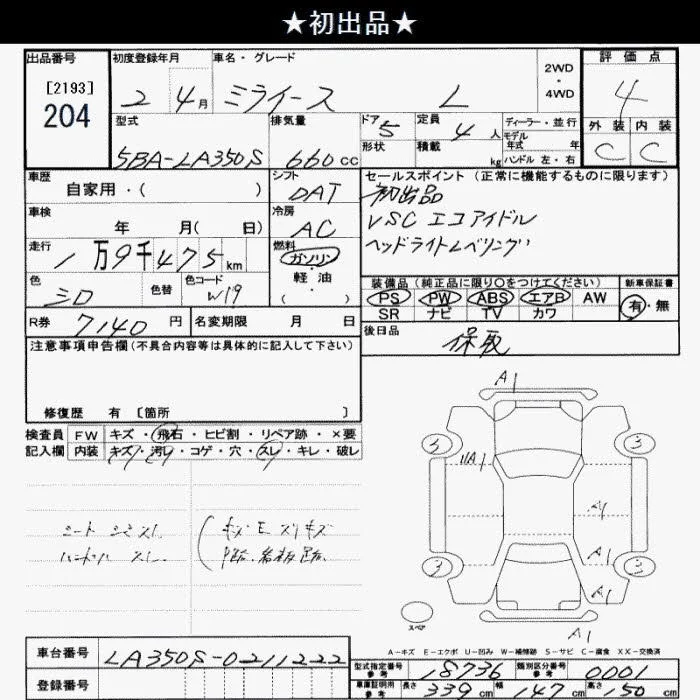 ★初出品★
出品番号
[2193]
204
初度登録年月
2 4月
車名・グレード
ミライース L
2WD
・
4WD
評価点
4
外装 内装
C C
型式
5BA-LA350S
排気量
660cc
ドア 5
形状
定員 4人
積載 kg
ディーラー・並行
モデル年式 年
ハンドル 左・右
車歴
自家用・( )
シフト
DAT
車検
年 月( 日)
冷房
AC
走行
1万9千475km
燃料
ガソリン
・
軽・油
・
( )
色
シロ
色替
色コード
W19
R券 7140円
名変期限 月 日
セールスポイント (正常に機能するものに限ります)
初出品
VSC エコアイドル
ヘッドライトレベリング
装備品(純正品に限り○をつけてください)
PS PW ABS エアB AW
SR ナビ TV カワ
新車保証書
有・無
後日品
保取
注意事項申告欄(不具合内容等は具体的に記入して下さい)
修復歴 有 〔箇所 〕
検査員記入欄
FW キズ・飛石・ヒビ割・リペア跡・×要
内装 キズ・汚レ・コゲ・穴・スレ・キレ・破レ
シート シミ スレ
ハンドル スレ
A1
5 3
A1
A1
A1
3 3
A1
A1
スペア
A-キズ E-エクボ U-凹み W-補修跡 S-サビ C-腐食 XX-交換済
車台番号 LA350S-0211222
登録番号
型式指定番号 参考 18736
類別区分番号 参考 0001
車庫証明用 参考
長さ 339cm
幅 147cm
高さ 150cm